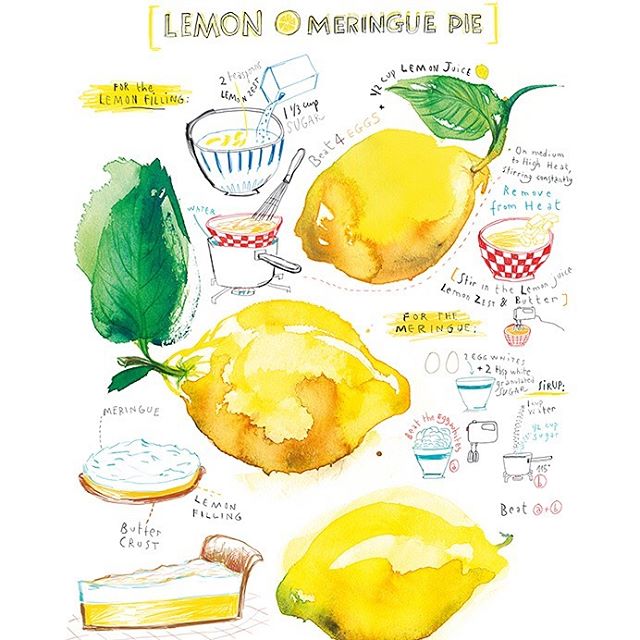 [ LEMON MERINGUE PIE ]
FOR the
LEMON FILLING:
2 teaspoons
LEMON ZEST
1 1/3 cup
SUGAR
Beat 4 EGGS + 1/2 CUP LEMON JUICE
WATER
On medium
to High Heat,
stirring constantly
Remove
from Heat
[Stir in the Lemon juice
Lemon Zest & Butter]
FOR THE
MERINGUE:
2 EGG WHITES
+ 2 tbsp white
granulated
SUGAR
SiRUP:
1 cup
Water
1/2 cup
Sugar
115°
b
Beat the Eggwhites
a
Beat a + b
MERINGUE
LEMON
FILLING
Butter
CRUST